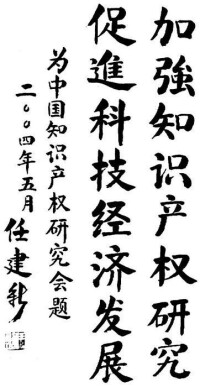 加強知识产权研究
促進科技经济发展
为中国知识产权研究会题
二〇〇四年五月
任建新